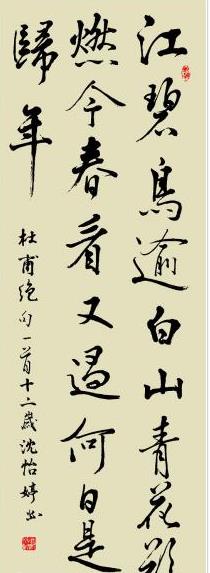 江碧鳥逾白山青花欲
燃今春看又過何日是
歸年
杜甫絕句一首十二歲沈怡婷書